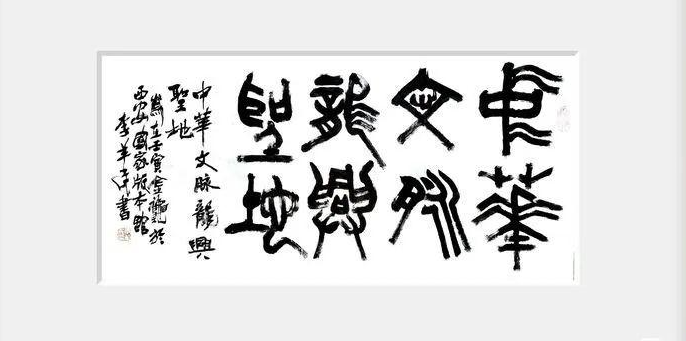 中華
文脈
龍興
聖地
中華文脈龍興
聖地
歲在壬寅金於
西安國家版本館
李羊民書